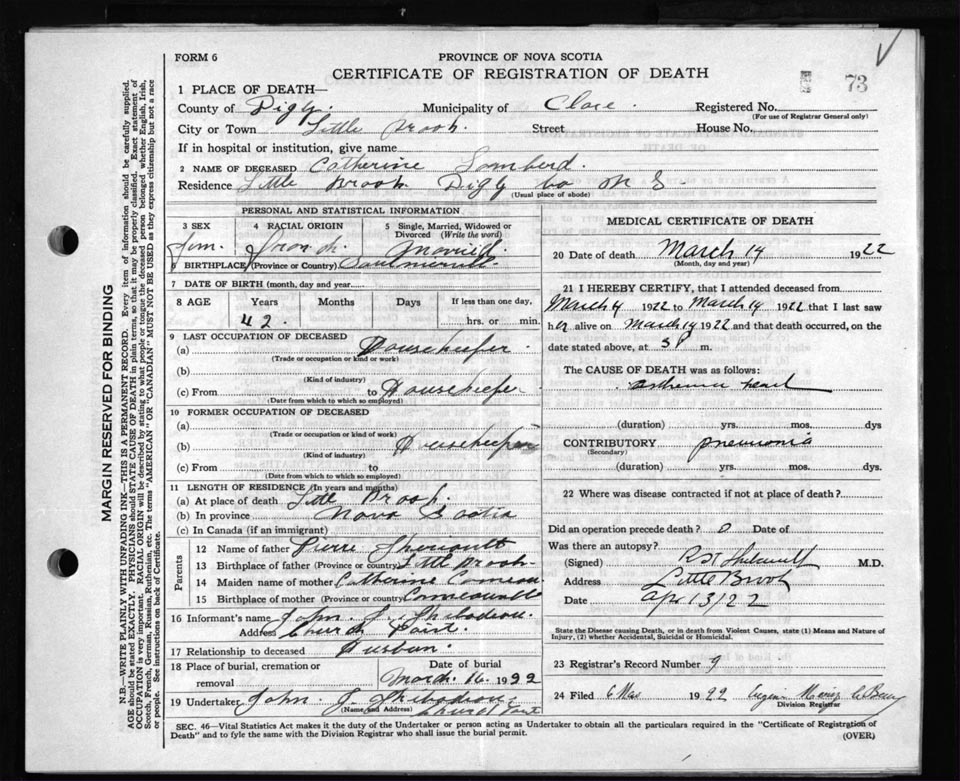 FORM 6
PROVINCE OF NOVA SCOTIA
CERTIFICATE OF REGISTRATION OF DEATH
73
1 PLACE OF DEATH—
County of Digby. Municipality of Clare. Registered No.
(For use of Registrar General only)
City or Town Little Brook. Street House No.
If in hospital or institution, give name
2 NAME OF DECEASED Catherine Lomberd.
Residence Little Brook Digby Co N S
(Usual place of abode)
PERSONAL AND STATISTICAL INFORMATION
3 SEX Fem. 4 RACIAL ORIGIN French. 5 Single, Married, Widowed or Divorced (Write the word) Married.
6 BIRTHPLACE (Province or Country)
7 DATE OF BIRTH (month, day and year)
8 AGE Years Months Days If less than one day,
42. hrs. or min.
9 LAST OCCUPATION OF DECEASED
(a) Housekeeper.
(Trade or occupation or kind or work)
(b)
(Kind of industry)
(c) From to Housekeeper
(Date from which to which so employed)
10 FORMER OCCUPATION OF DECEASED
(a)
(Trade or occupation or kind of work)
(b) Housekeeper
(Kind of industry)
(c) From to
(Date from which to which so employed)
11 LENGTH OF RESIDENCE (In years and months)
(a) At place of death Little Brook.
(b) In province Nova Scotia
(c) In Canada (if an immigrant)
Parents
12 Name of father Pierre
13 Birthplace of father (Province or country) Little Brook.
14 Maiden name of mother Catherine Comeau
15 Birthplace of mother (Province or country)
16 Informant's name John J. Thibodeau
Address Church Point.
17 Relationship to deceased
18 Place of burial, cremation or removal Date of burial
March. 16. 1922
19 Undertaker John J Thibodeau
(Name and Address) Church Point
MEDICAL CERTIFICATE OF DEATH
20 Date of death March 14 1922
(Month, day and year)
21 I HEREBY CERTIFY, that I attended deceased from
March 4 1922 to March 14 1922 that I last saw
her alive on March 14 1922 and that death occurred, on the
date stated above, at 5 P m.
The CAUSE OF DEATH was as follows:
heart
(duration) yrs. mos. dys
CONTRIBUTORY pneumonia
(Secondary)
(duration) yrs. mos. dys.
22 Where was disease contracted if not at place of death?
Did an operation precede death? 0 Date of
Was there an autopsy?
(Signed) M.D.
Address Little Brook
Date Apr 13/22
State the Disease causing Death, or in death from Violent Causes, state (1) Means and Nature of
Injury, (2) whether Accidental, Suicidal or Homicidal.
23 Registrar's Record Number 9
24 Filed 1922
Division Registrar
SEC. 46—Vital Statistics Act makes it the duty of the Undertaker or person acting as Undertaker to obtain all the particulars required in the "Certificate of Registration of
Death" and to fyle the same with the Division Registrar who shall issue the burial permit.
(OVER)
MARGIN RESERVED FOR BINDING
N.B.—WRITE PLAINLY WITH UNFADING INK—THIS IS A PERMANENT RECORD. Every item of information should be carefully supplied.
AGE should be stated EXACTLY. PHYSICIANS should STATE CAUSE OF DEATH in plain terms, so that it may be properly classified. Exact statement of
OCCUPATION is very important. RACIAL ORIGIN will be described by stating to what people or tongue the deceased person belonged whether English, Irish,
Scotch, French, German, Russian, Ruthenian, etc. The terms "AMERICAN" or "CANADIAN" MUST NOT BE USED as they express citizenship but not a race
or people. See instructions on back of Certificate.